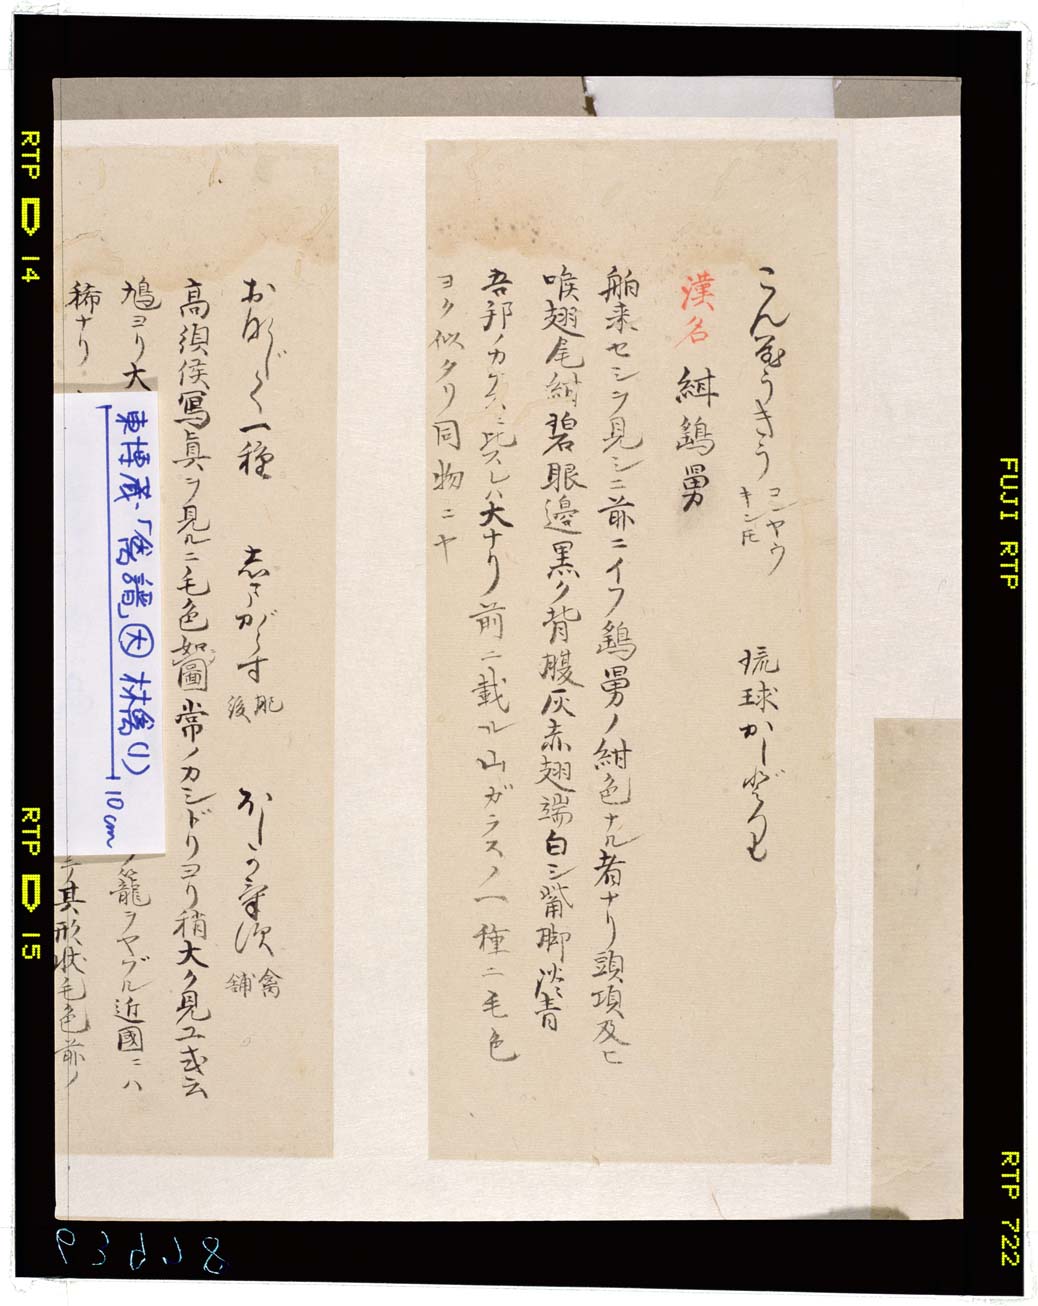 こんやうきう コンヤウ キン氏 琉球かしどり
漢名 紺鷄舅
舶来セシヲ見シニ前ニイフ鷄舅ノ紺色ナル者ナリ頭項及ヒ
喉翅尾紺碧眼邊黒ク背腹灰赤翅端白シ觜脚淡青
吾邦ノカラスニ比スレハ大ナリ前ニ載ル山ガラスノ一種ニ毛色
ヨク似タリ同物ニヤ
おなじく一種 志まがらす 肥後 禽舗
高須侯寫眞ヲ見ルニ毛色如圖常ノカシドリヨリ稍大ク見ユ或云
鳩ヨリ大
ノ籠ヲヤブル近國ニハ
稀ナリ
其形状毛色前ノ
東博蔵、「禽譜」 林禽(1)
10cm
RTP 14
RTP 15
FUJI RTP
RTP 722